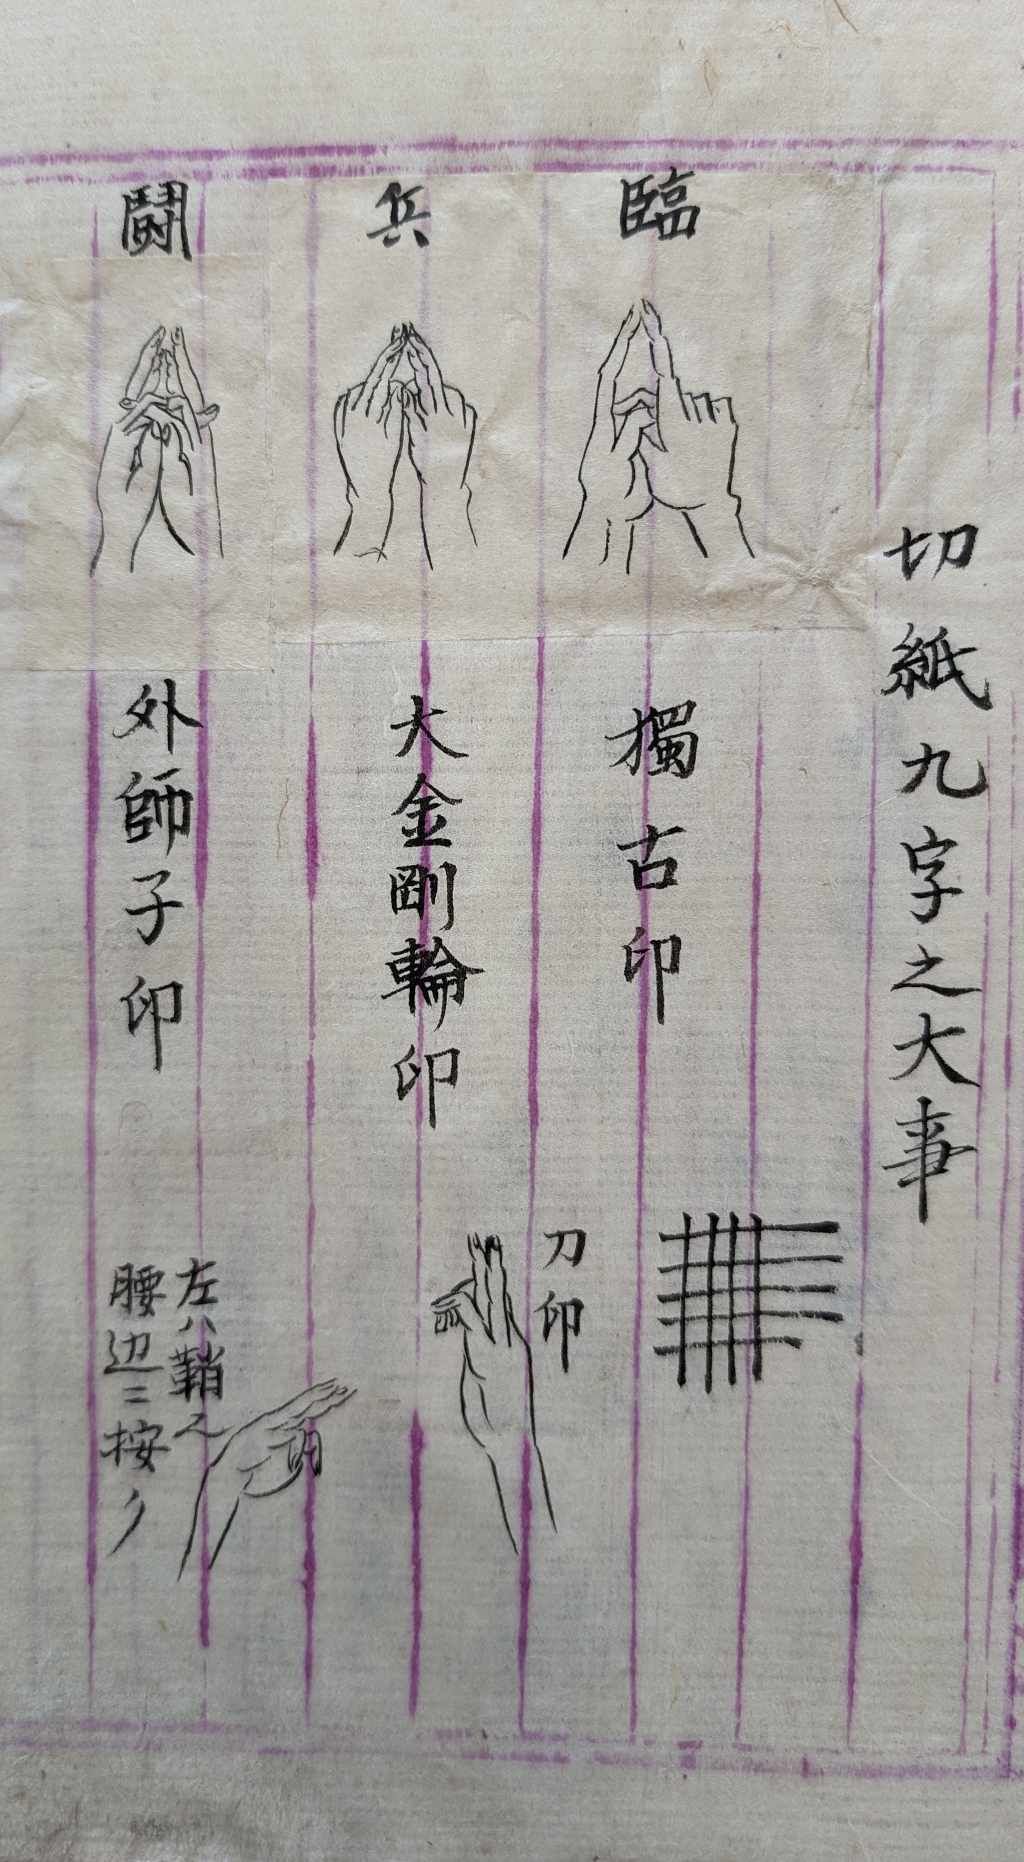 切紙九字之大事
臨
獨古印
兵
大金剛輪印
刀印
闘
外師子印
左ハ鞘ニ
腰辺ニ按ク